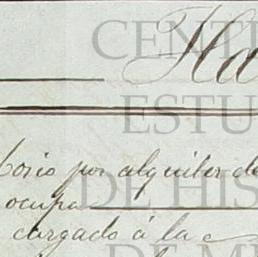 Ha
CENT
ESTU
orio por alquiler de
DE HIS
ocupa
cargado á la
DE M